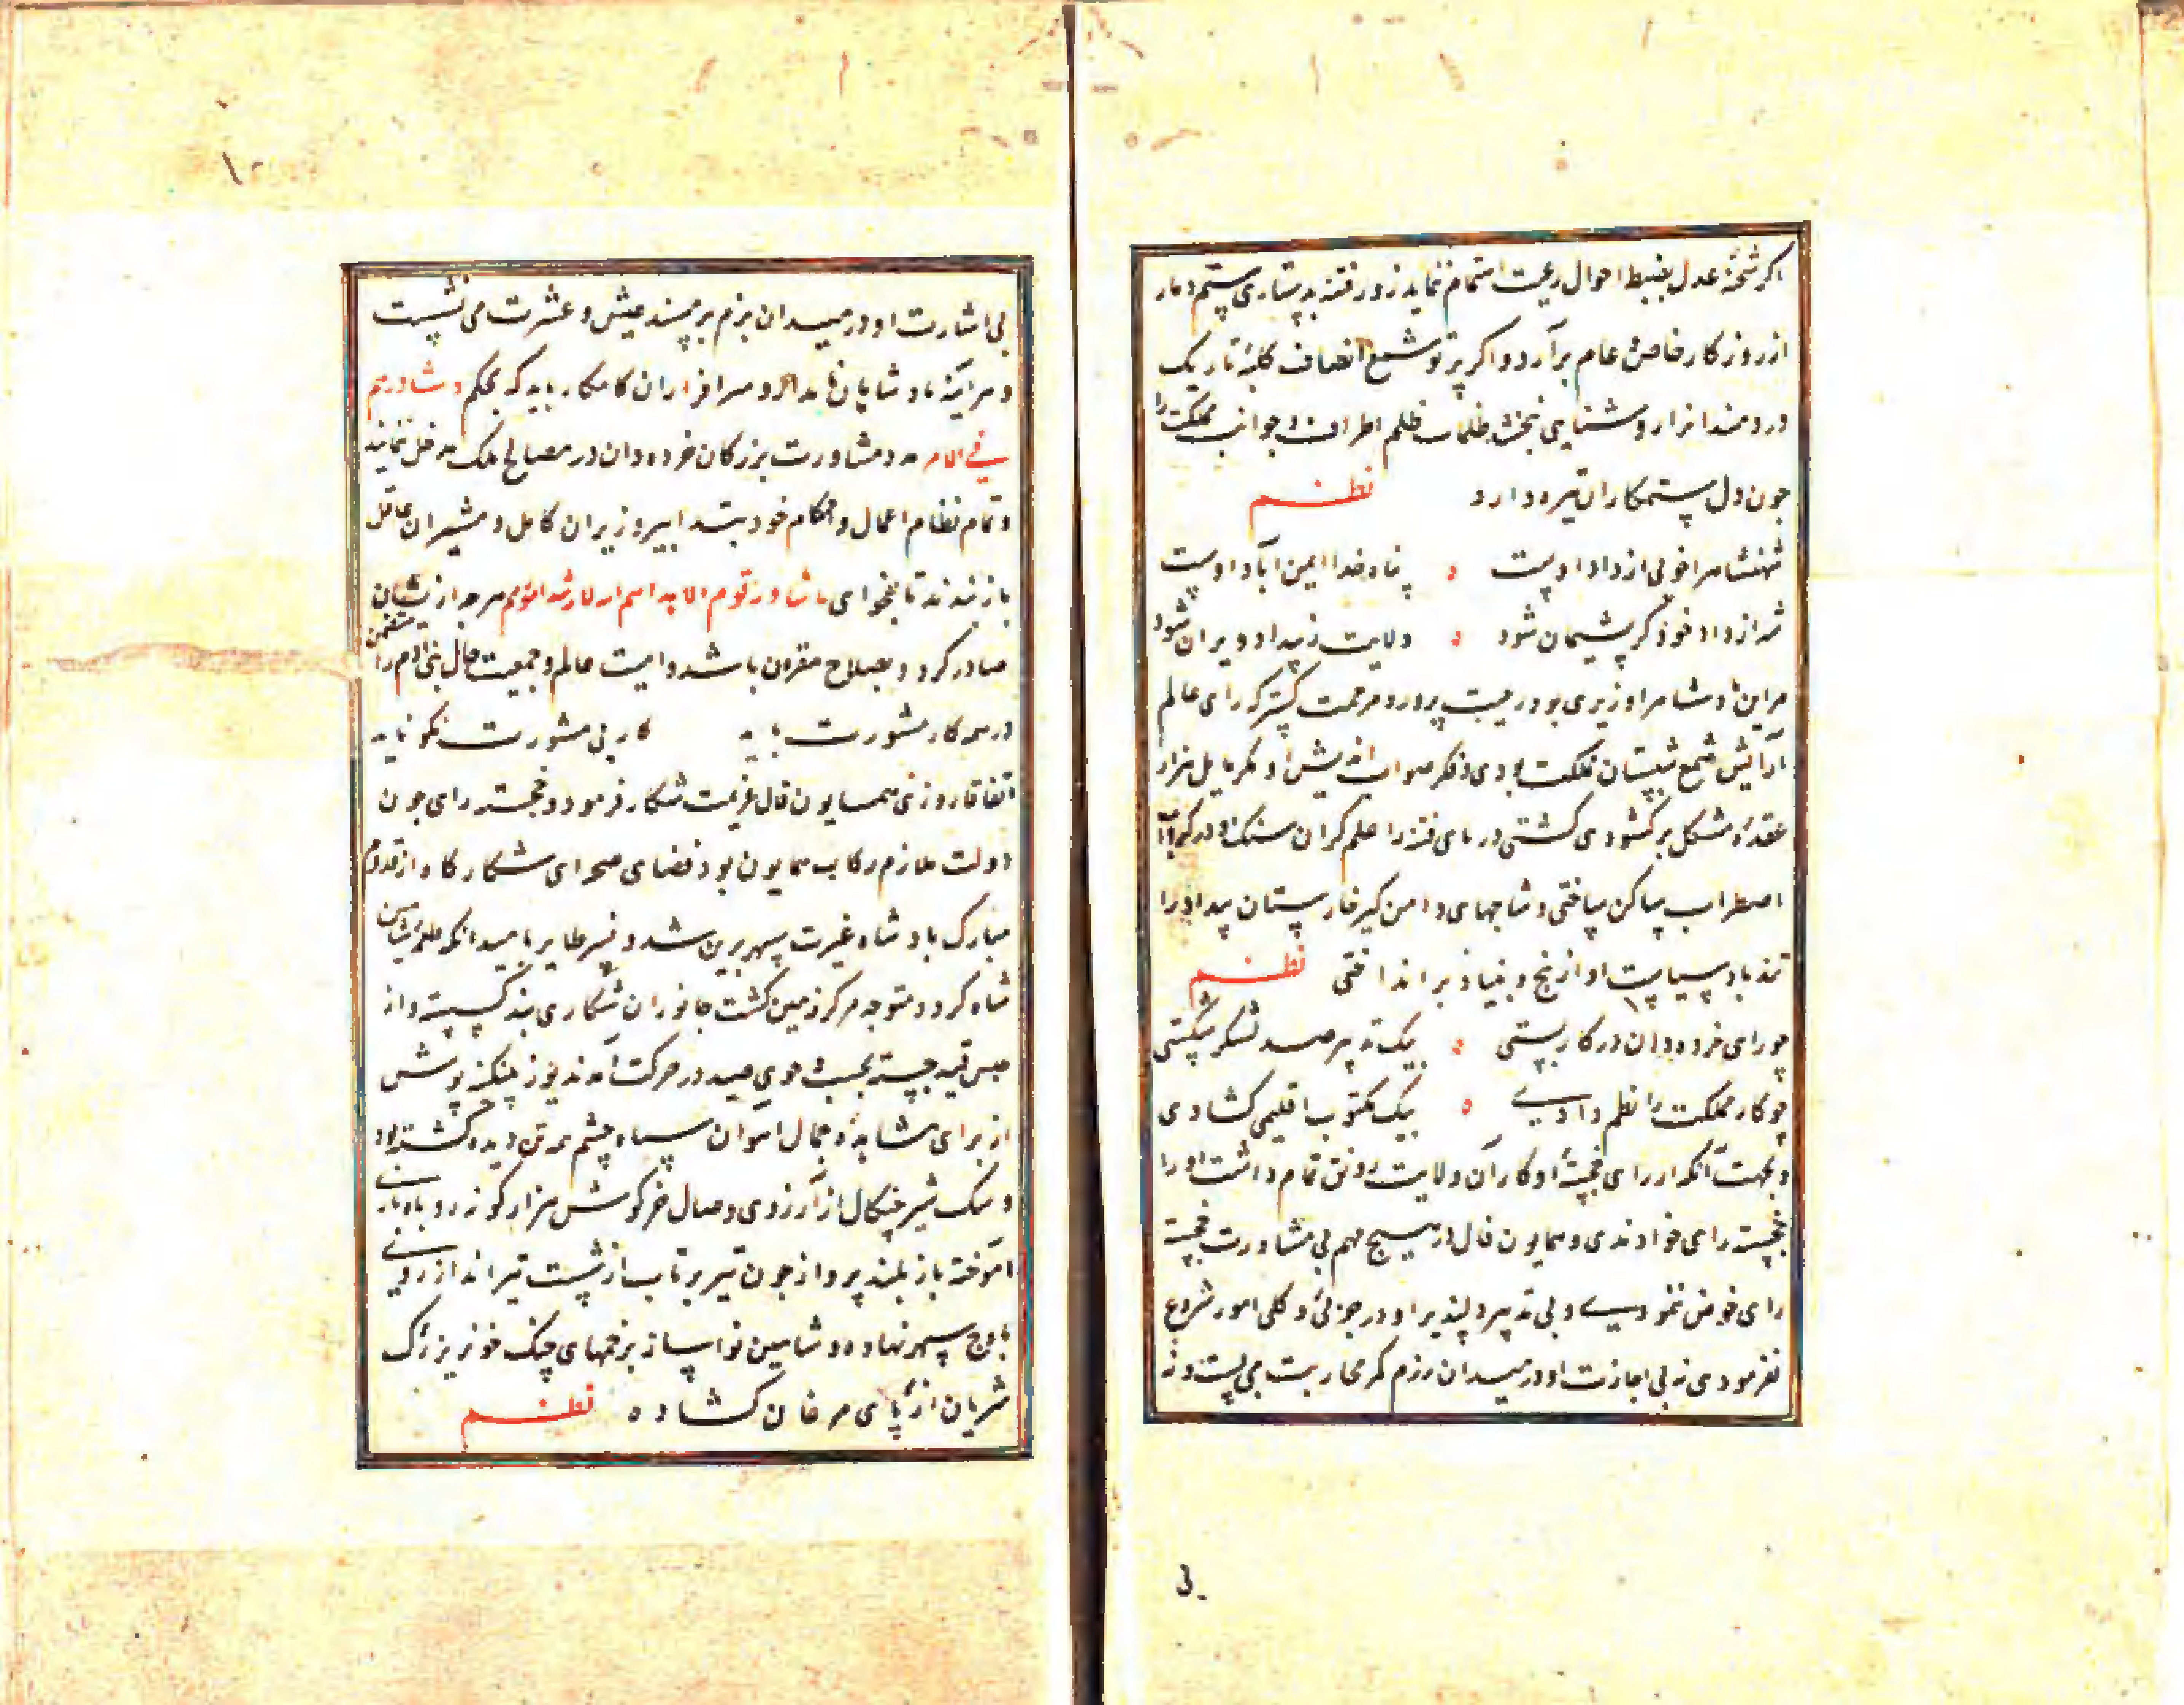 اکر شحنهٔ عدل بضبط احوال رعیت اهتمام ننماید دزد فتنه بدستیاری ستم دمار
از روزکار خاص و عام برآرد و اکر پرتو شمع انصاف کلبهٔ تاریک
دردمندانرا روشنایی نبخشد ظلمات ظلم اطراف و جوانب مملکت را
جون دل ستمکاران تیره دارد نظم
شهنشاه را خوبی از داد اوست پناه خدا ایمن آباد اوست
شه از داد خود کر پشیمان شود ولایت ز بیداد ویران شود
مر این پادشاه را وزیری بود رعیت پرور و مرحمت کستر که رای عالم
آرایش شمع شبستان مملکت بودی و فکر صواب اندیش او بکر هزار
عقدهٔ مشکل برکشودی کشتی دریای فتنه را حلم کران سنک او در کرداب
اضطراب ساکن ساختی و شاخهای دامن کیر خارستان بیداد را
تندباد سیاست او از بیخ و بنیاد برانداختی نظم
چو رای خرده دان در کار بستی بیک تدبیر صد لشکر شکستی
چو کار مملکت را نظم دادی بیک مکتوب اقلیمی کشادی
و بجهت آنکه از رای خجستهٔ او کار آن ولایت رونق تمام داشت او را
خجسته رای خواندندی و همایون فال در هیچ مهم بی مشاورت خجسته
رای خوض ننمودی و بی تدبیر دلپذیر او در جزئی و کلی امور شروع
نفرمودی نه بی اجازت او در میدان رزم کمر محاربت می بست و نه
بی اشارت او در میدان بزم بر مسند عیش و عشرت می نشست
و هر آینه پادشاهان نامدار و سرافرازان کامکار باید که بحکم و شاورهم
فی الامر بی مشاورت بزرکان خرده دان در مصالح ملک مدخل ننمایند
و تمام نظام اعمال و احکام خود بتدابیر وزیران کامل و مشیران عاقل
باز بندند تا بفحوای ما تشاور قوم الا هداهم الله لارشد امورهم هرجه از ایشان
صادر کردد بصلاح مقرون باشد و امنیت عالم و جمعیت حال بنی آدم را متضمن
در همه کار مشورت باید کار بی مشورت نکو ناید
اتفاقا روزی همایون فال عزیمت شکار فرمود و خجسته رای جون
دولت ملازم رکاب همایون بود فضای صحرای شکارکاه از قدوم
مبارک بادشاه غیرت سپهر برین شد و نسر طایر بامید آنکه طعمهٔ شاهین
شاه کردد متوجه مرکز زمین کشت جانوران شکاری بند کسسته و از
حبس قید جسته بجست و جوی صید در حرکت آمدند یوز پلنکینه پوش
از برای مشاهدهٔ جمال آهوان سیاه چشم همه تن دیده کشته بود
و سک شیر چنکال از آرزوی وصال خرکوش هزار کونه روباه بازی
آموخته باز بلند پرواز جون تیر پرتاب از شست تیرانداز روی
باوج سپهر نهاده و شاهین نواساز بزخمهای چنک خونریز رک
شریان از پای مرغان کشاده نظم